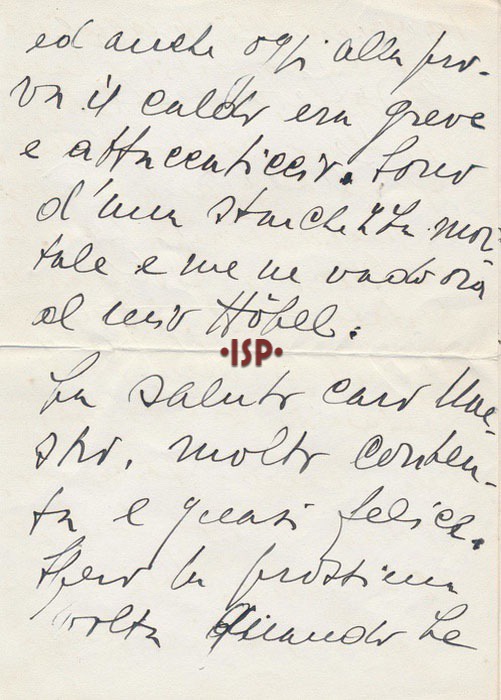 ed anche oggi alla pro-
va il caldo era greve
e attaccaticcio. Sono
d'una stanchezza mor-
tale e me ne vado ora
al mio Hôtel.
•ISP•
La saluto caro Mae-
stro, molto conten-
ta e quasi felice.
Spero la prossima
volta quando Le